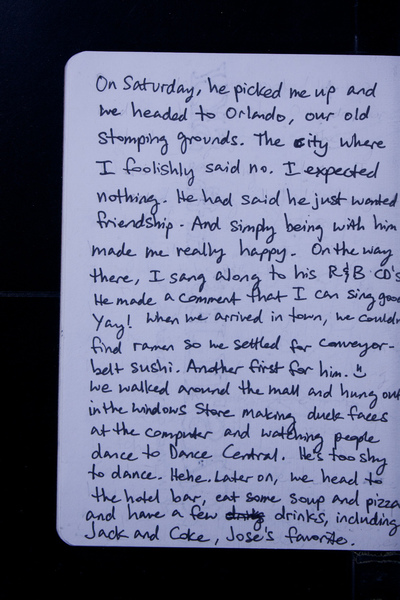 On Saturday, he picked me up and
we headed to Orlando, our old
stomping grounds. The city where
I foolishly said no. I expected
nothing. He had said he just wanted
friendship. And simply being with him
made me really happy. On the way
there, I sang along to his R&B CD's
He made a comment that I can sing good
Yay! When we arrived in town, we couldn
find ramen so we settled for conveyor-
belt sushi. Another first for him.
we walked around the mall and hung out
in the Windows Store making duck faces
at the computer and watching people
dance to Dance Central. He's too shy
to dance. Hehe. Later on, we head to
the hotel bar, eat some soup and pizza
and have a few drinks, including
Jack and Coke, Jose's favorite.